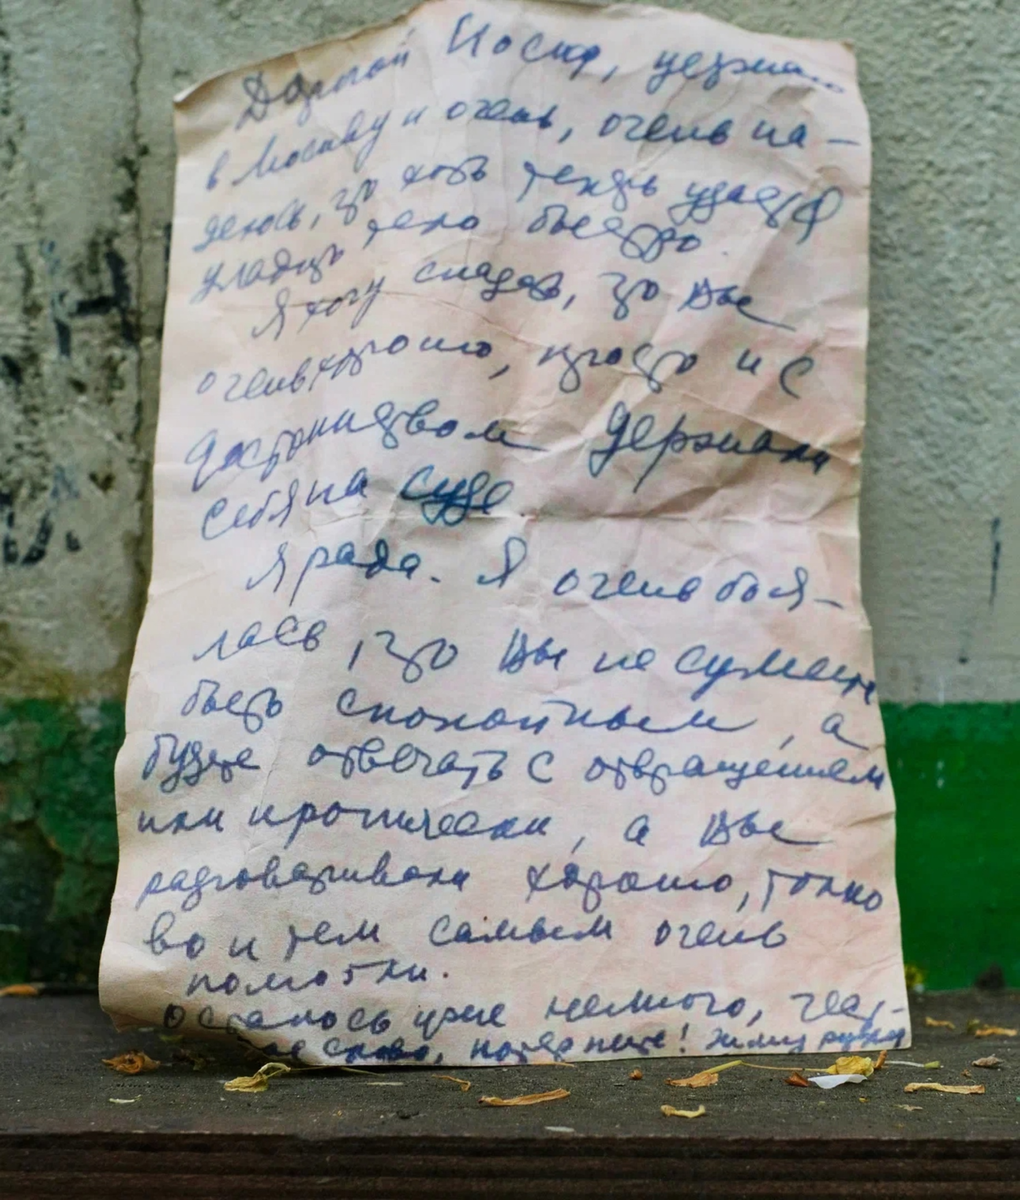 Дорогой Иосиф, уезжаю
в Москву и очень, очень на-
деюсь, что хоть теперь удастся
уладить дело быстро.
Я хочу сказать, что Вы
очень хорошо, просто и с
достоинством держали
себя на суде.
Я рада. Я очень боя-
лась, что Вы не сумеете
быть спокойным, а
будете отвечать с отвращением
или иронически, а Вы
разговаривали хорошо, толко-
во и тем самым очень
помогли.
Осталось уже немного, чест-
ное слово, потерпите! Жму руку